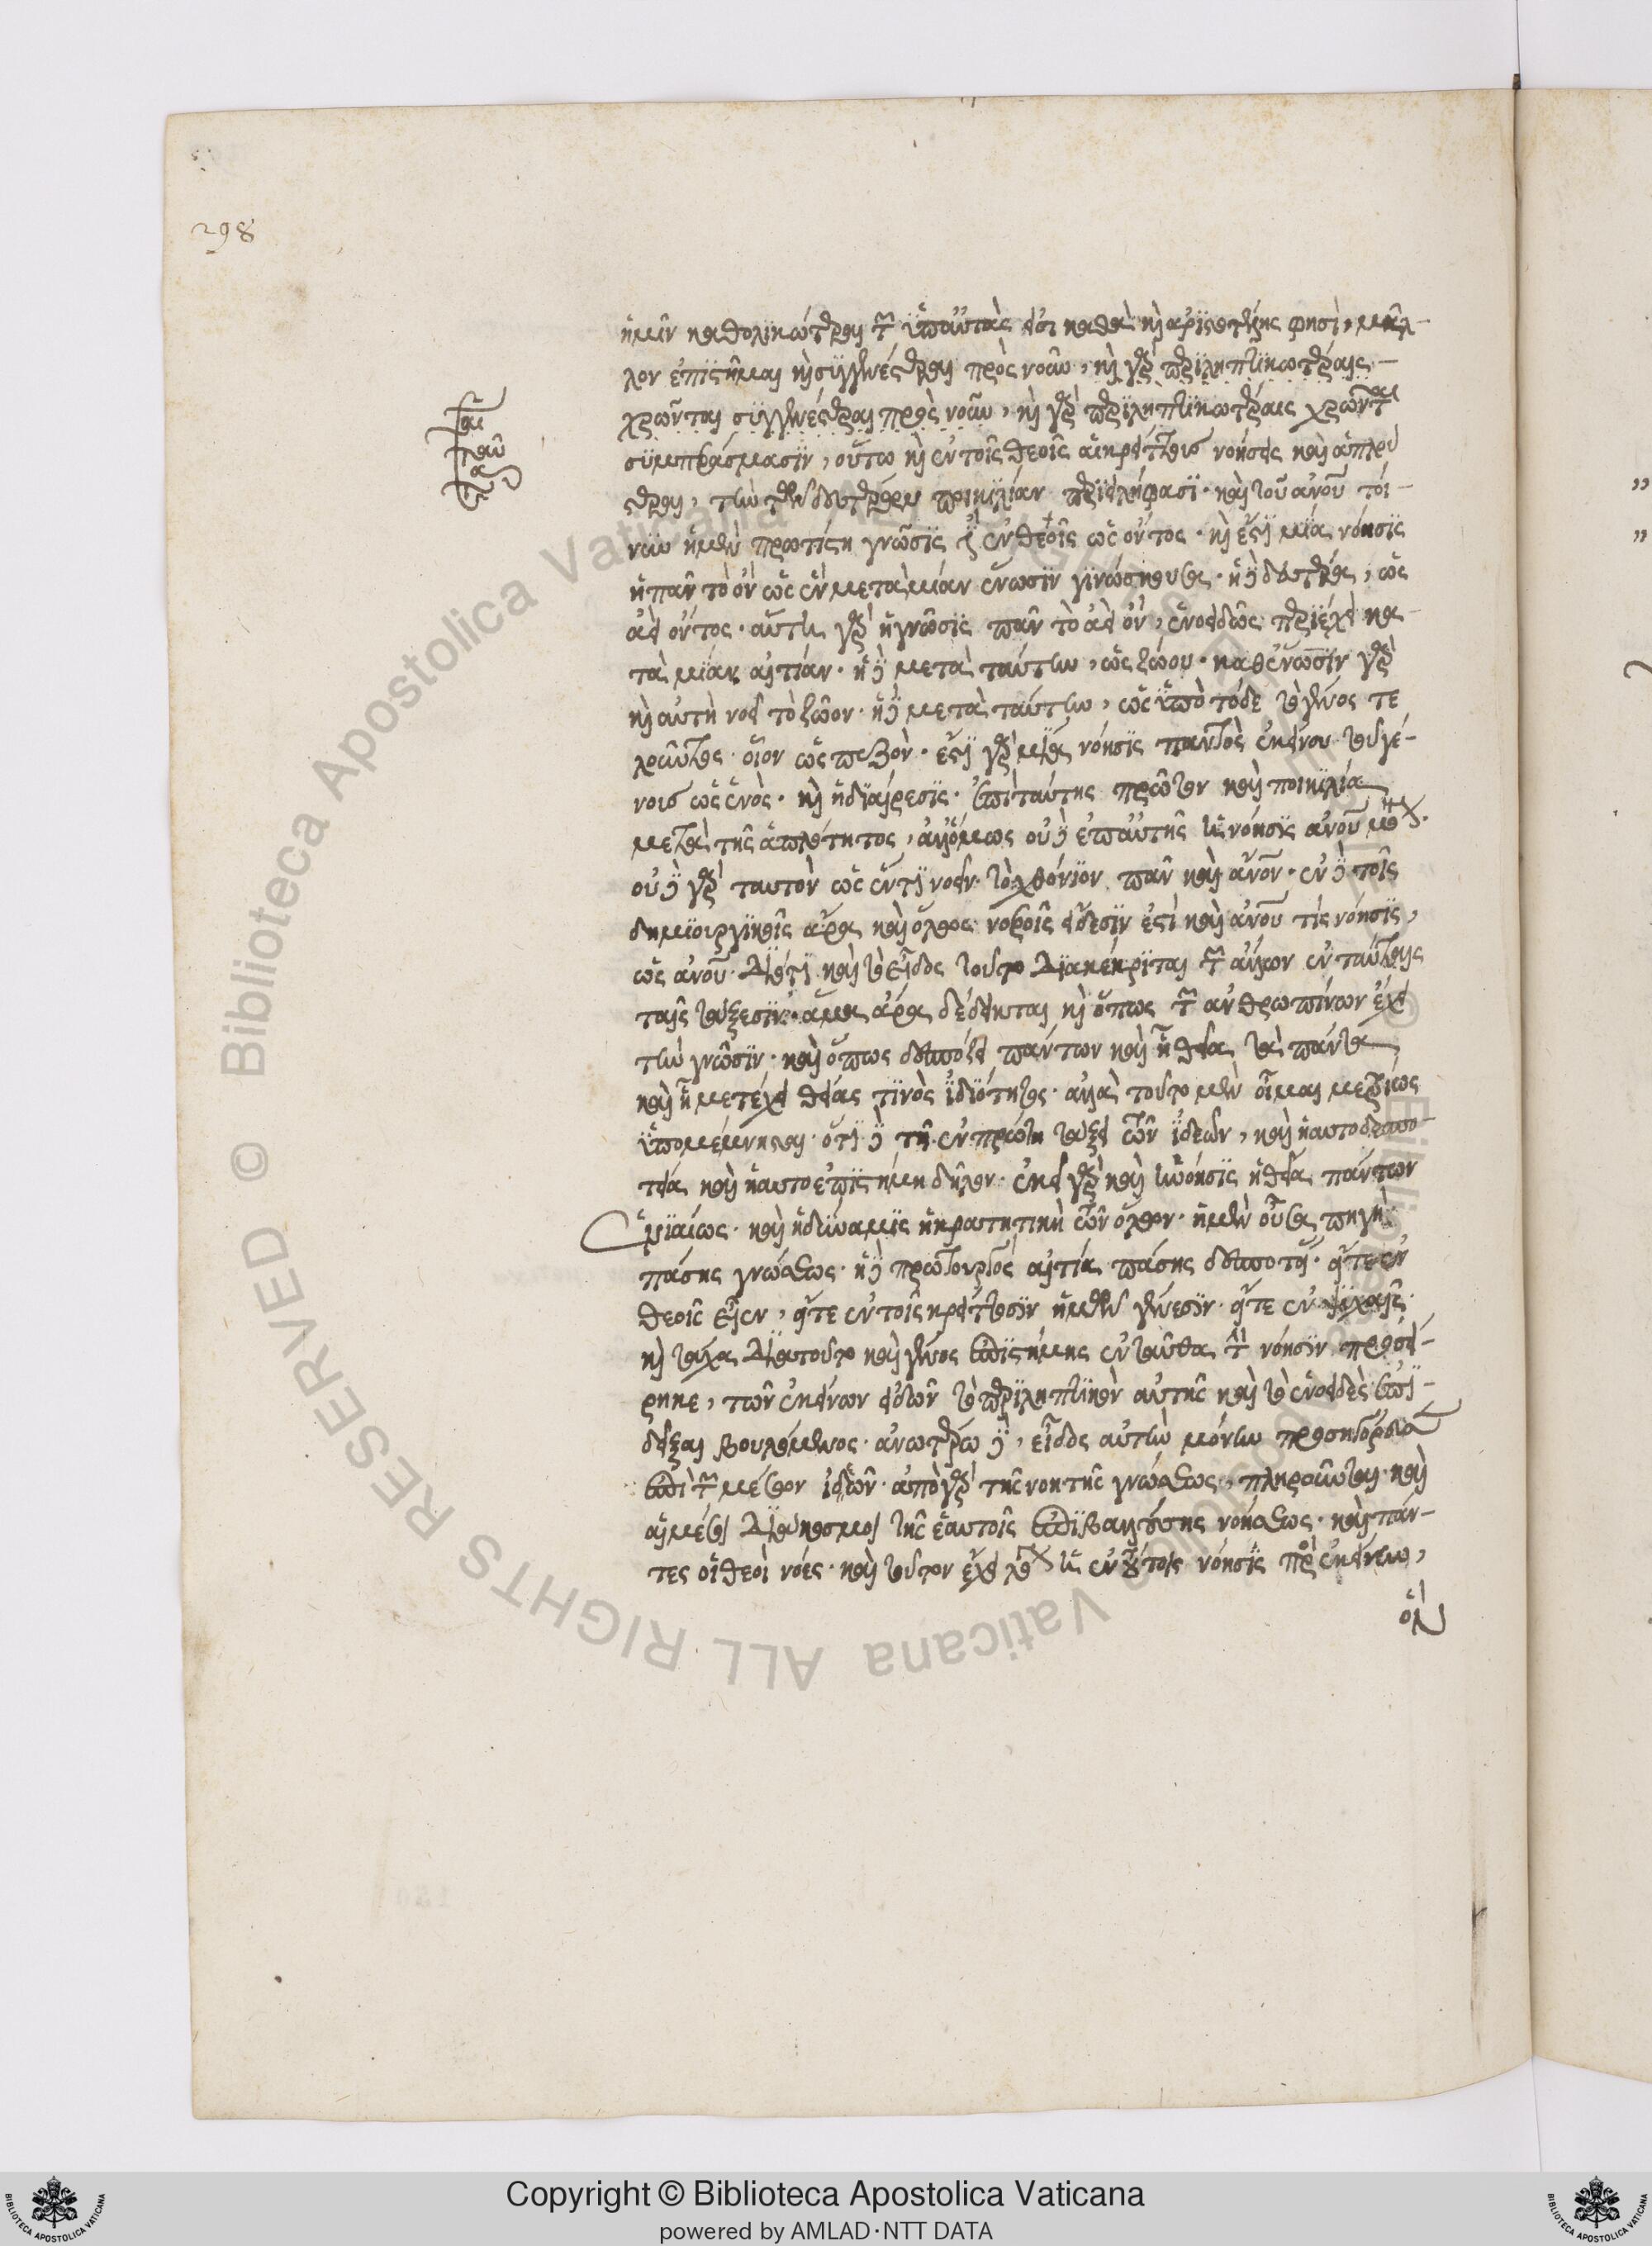 298
ἡμῖν καθολικώτεραι τῶν ὑπ' αὐτὰς εἰσι καθὰ καὶ ἀριστοτέλης φησὶ, μᾶλ-
λον ἐπιστῆμαι καὶ συγγενέστεραι πρὸς νοῦν, καὶ γὰρ περιληπτικωτέραις-
χρῶνται συγγενέστεραι πρὸς νοῦν, καὶ γὰρ περιληπτικωτέραις χρῶνται
συμπεράσμασιν, οὕτω καὶ ἐν τοῖς θεοῖς αἱ κρείττους νοήσεις καὶ ἁπλού
στεραι, τὴν τῶν δευτέρων ποικιλίαν περιειλήφασι. καὶ τοῦ ἀνου τοί-
νυν ἡ μὲν πρωτίστη γνῶσις ἐν θεοῖς ὡς ὄντος. καὶ ἔστι μία νόησις
ἡ πᾶν τὸ ὂν ὡς ἓν μετὰ μίαν ἕνωσιν γινώσκουσα. ἡ δὲ δευτέρα, ὡς
ἀεὶ ὄντος. αὕτη γὰρ ἡ γνῶσις πᾶν τὸ ἀεὶ ὂν, ἑνοειδῶς περιέχει κα-
τὰ μίαν αἰτίαν. ἡ δὲ μετὰ ταύτην, ὡς ζώου. καθ' ἕνωσιν γὰρ
καὶ αὐτὴ νοεῖ τὸ ζῶον. ἡ δὲ μετὰ ταύτην, ὡς ὑπὸ τόδε τὸ γένος τε
λοῦντος. οἷον ὡς πεζόν. ἔστι γὰρ μία νόησις παντὸς ἐκείνου τοῦ γέ-
νους ὡς ἑνὸς. καὶ ἡ διαίρεσις. ἐπὶ ταύτης πρῶτον καὶ ποικιλία
μετὰ τῆς ἁπλότητος, ἀλλ' ὅμως οὐδ' ἐπ' αὐτῆς ἡ νόησις ἀνου μόνου.
οὐδὲ γὰρ ταυτὸν ὡς ἕν τι νοεῖν τὸ χθόνιον πᾶν καὶ ἀνον. ἐν δὲ τοῖς
δημιουργικοῖς ἄρα καὶ ὅλως νοεροῖς εἴδεσιν ἐστὶ καὶ ἀνου τὶς νόησις,
ὡς ἀνου. διότι καὶ τὸ εἶδος τοῦτο διακέκριται τῶν ἄλλων ἐν ταύταις
ταῖς τάξεσιν. ἅμα ἄρα δέδεικται καὶ ὅπως τῶν ἀνθρωπίνων ἔχει
τὴν γνῶσιν. καὶ ὅπως δεσπόζει πάντων καὶ ἡ θεία τὰ πάντα
καὶ ἡ μετέχει θείας τινὸς ἰδιότητος. ἀλλὰ τοῦτο μὲν οἶμαι μετρίως
ὑπομέμνησται. ὅτι δὲ τῇ ἐν πρώτῃ τάξει τῶν ἰδεῶν, καὶ ἡ αὐτοδεσπο
τεία καὶ ἡ αὐτοεπιστήμη δῆλον. ἐκεῖ γὰρ καὶ ἡ νόησις ἡ θεία πάντων
ἑνιαίως. καὶ ἡ δύναμις ἡ κρατητικὴ τῶν ὅλων. ἡ μὲν οὖσα πηγὴ
πάσης γνώσεως. ἡ δὲ πρωτουργὸς αἰτία πάσης δεσποτεί. εἴτε ἐν
θεοῖς εἴη, εἴτε ἐν τοῖς κρείττοσιν ἡμῶν γένεσιν. εἴτε ἐν ψυχαῖς.
καὶ τάχα διὰ τοῦτο καὶ γένος ἐπιστήμης ἐνταῦθα τὴν νόησιν προσεί-
ρηκε, τῶν ἐκείνων εἰδῶν τὸ περιληπτικὸν αὐτῆς καὶ τὸ ἑνοειδὲς ἐπι-
δεῖξαι βουλόμενος. ἀνωτέρω δὲ, εἶδος αὐτὴν μόνην προσηγόρευσεν
ἐπὶ τῶν μέσων ἰδεῶν. ἀπὸ γὰρ τῆς νοητῆς γνώσεως, πληροῦνται καὶ
αἱ μέσαι διάκοσμοι τῆς ἑαυτοῖς ἐπιβαλλούσης νοήσεως. καὶ πάν-
τες οἱ θεοὶ νόες. καὶ τοῦτον ἔχει λόγον ἡ ἐν τούτοις νόησις πρὸς ἐκείνην,
ὃν